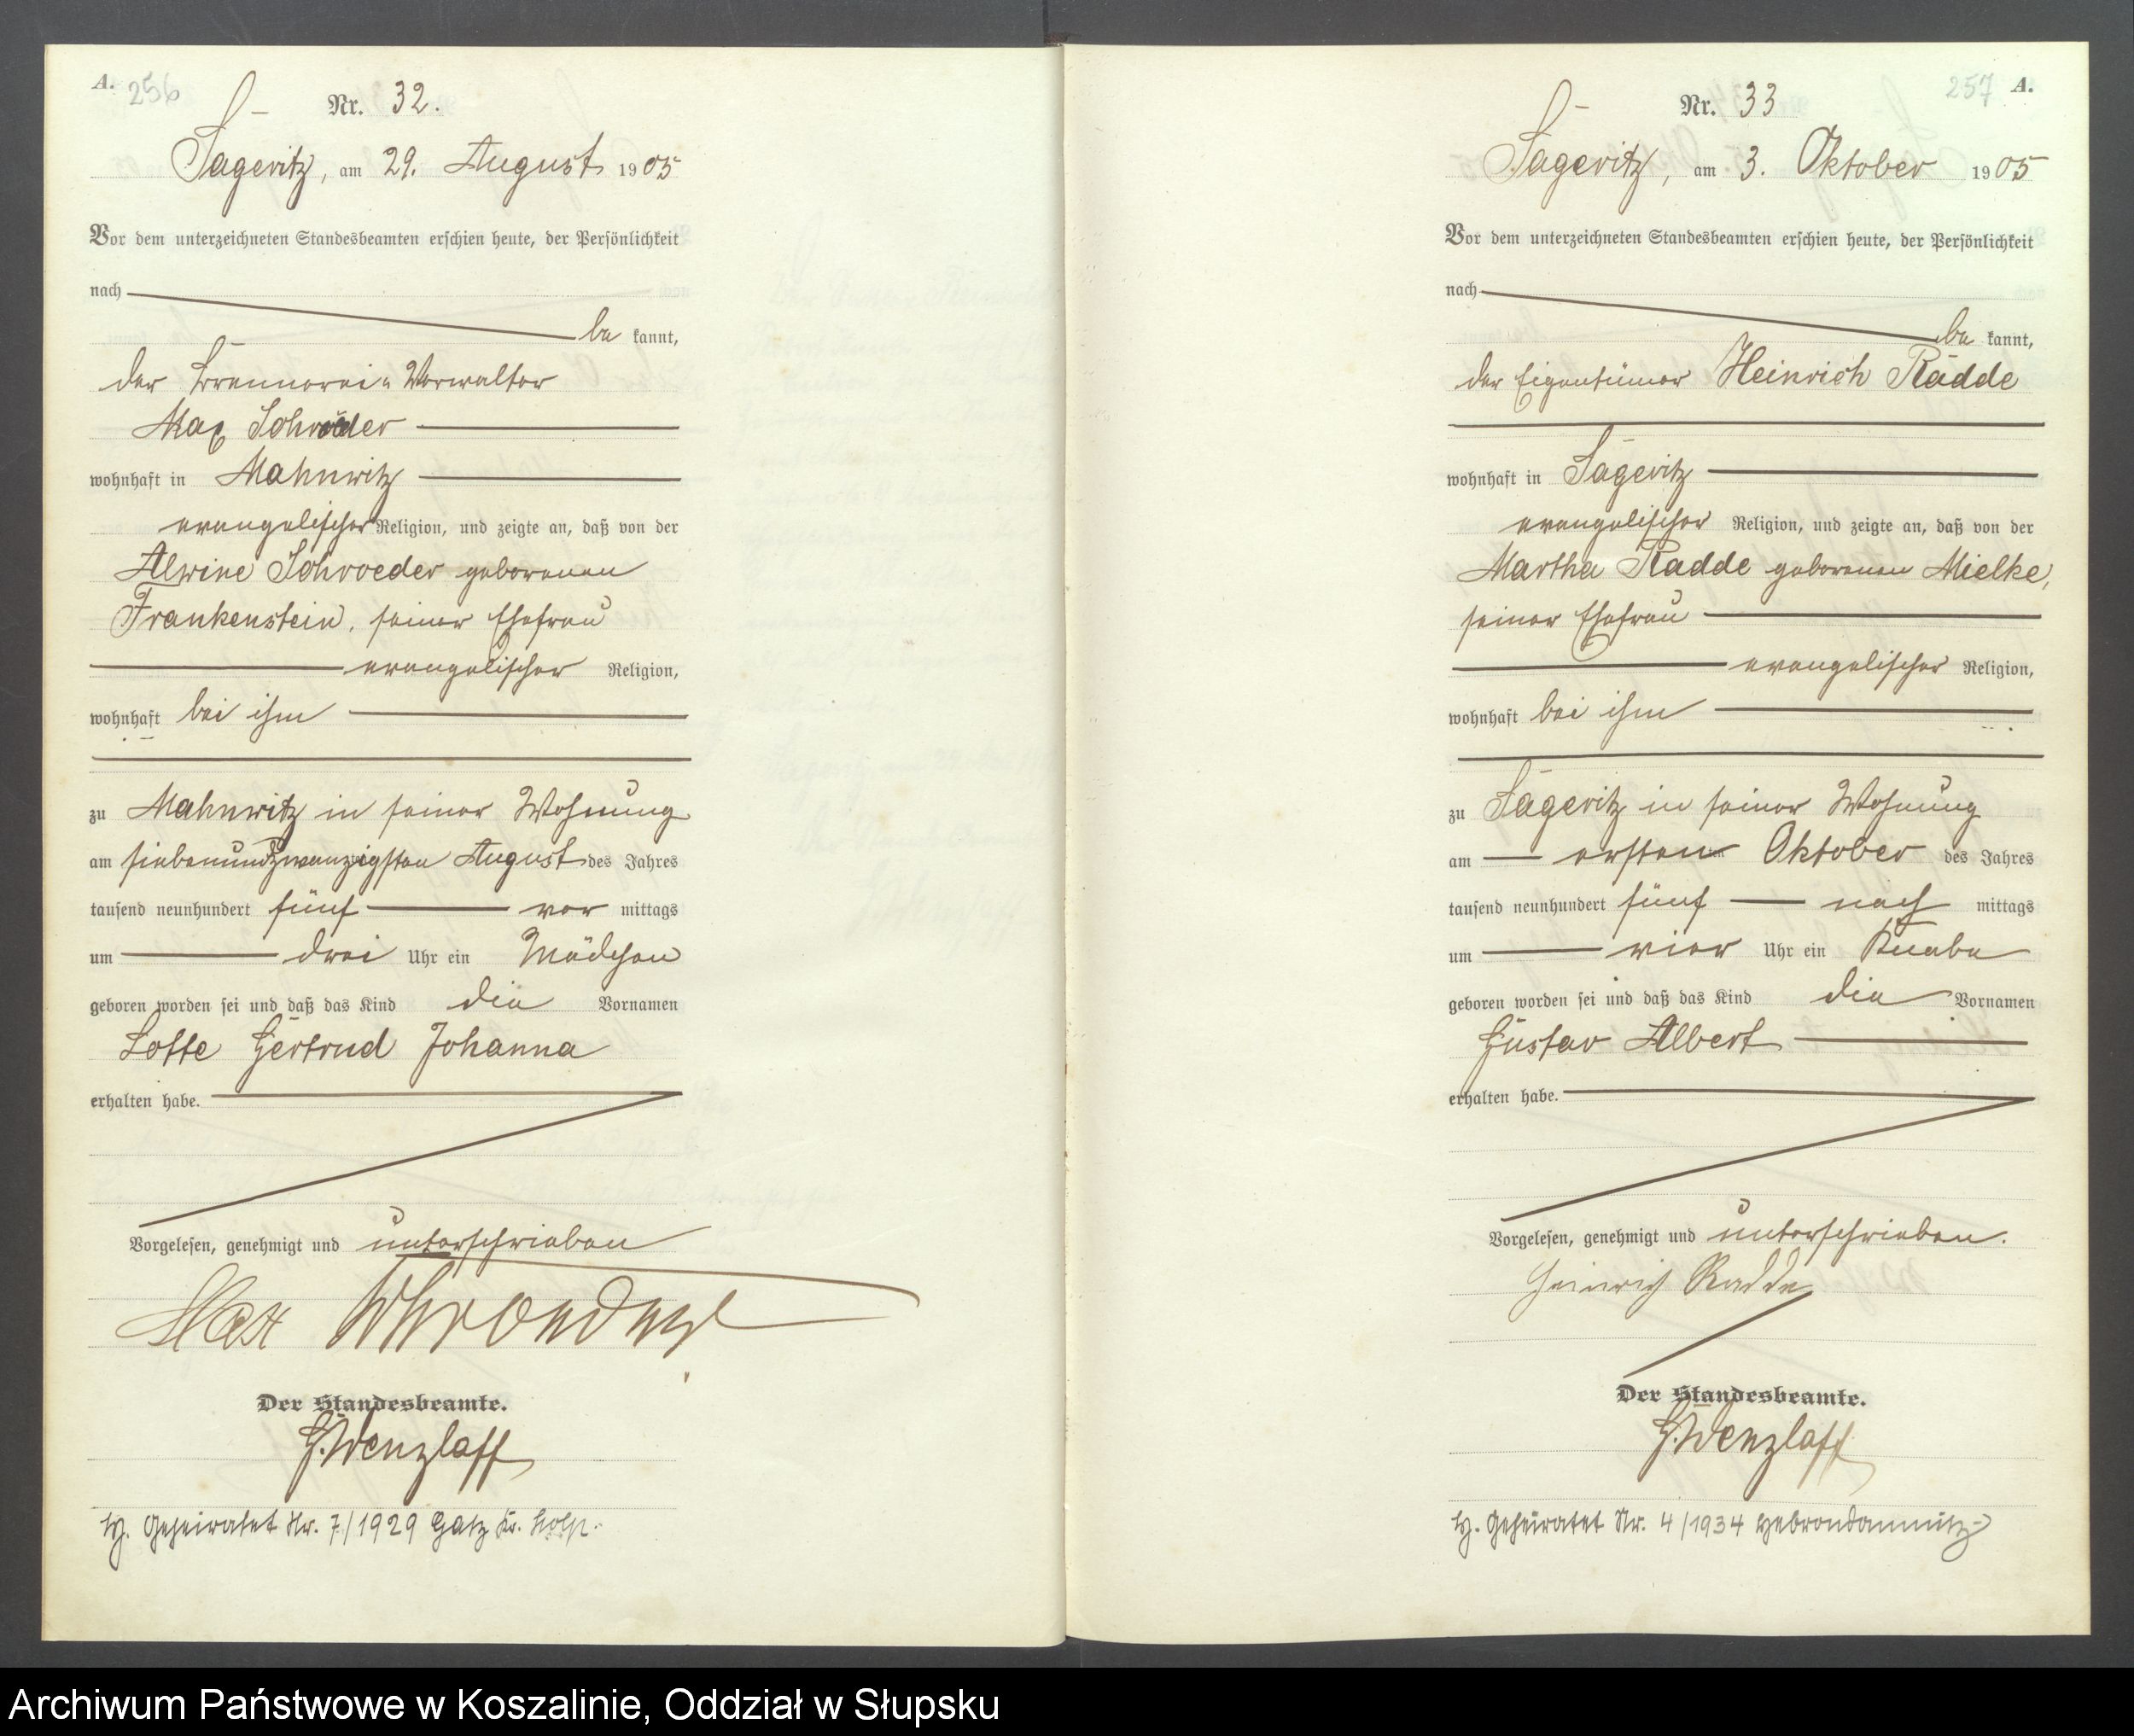 A. 256
Nr. 32.
Sageritz, am 29. August 1905
Vor dem unterzeichneten Standesbeamten erschien heute, der Persönlichkeit
nach
be kannt,
der Brennerei-Verwalter
Max Schroeder
wohnhaft in Mahnwitz
evangelischer Religion, und zeigte an, daß von der
Alwine Schroeder geborenen
Frankenstein, seiner Ehefrau
evangelischer Religion,
wohnhaft bei ihm
zu Mahnwitz in seiner Wohnung
am siebenundzwanzigsten August des Jahres
tausend neunhundert fünf vor mittags
um drei Uhr ein Mädchen
geboren worden sei und daß das Kind die Vornamen
Lotte Gertrud Johanna
erhalten habe.
Vorgelesen, genehmigt und unterschrieben
Max Schroeder
Der Standesbeamte.
G. Wenzlaff
H. Geheiratet Nr. 7/1929 Gatz Kr. Stolp.
257 A.
Nr. 33
Sageritz, am 3. Oktober 1905
Vor dem unterzeichneten Standesbeamten erschien heute, der Persönlichkeit
nach
be kannt,
der Eigentümer Heinrich Radde
wohnhaft in Sageritz
evangelischer Religion, und zeigte an, daß von der
Martha Radde geborenen Mielke,
seiner Ehefrau
evangelischer Religion,
wohnhaft bei ihm
zu Sageritz in seiner Wohnung
am ersten Oktober des Jahres
tausend neunhundert fünf nach mittags
um vier Uhr ein Knabe
geboren worden sei und daß das Kind die Vornamen
Gustav Albert
erhalten habe.
Vorgelesen, genehmigt und unterschrieben.
Heinrich Radde
Der Standesbeamte.
G. Wenzlaff
H. Geheiratet Nr. 4/1934 Hebrondamnitz
Archiwum Państwowe w Koszalinie, Oddział w Słupsku